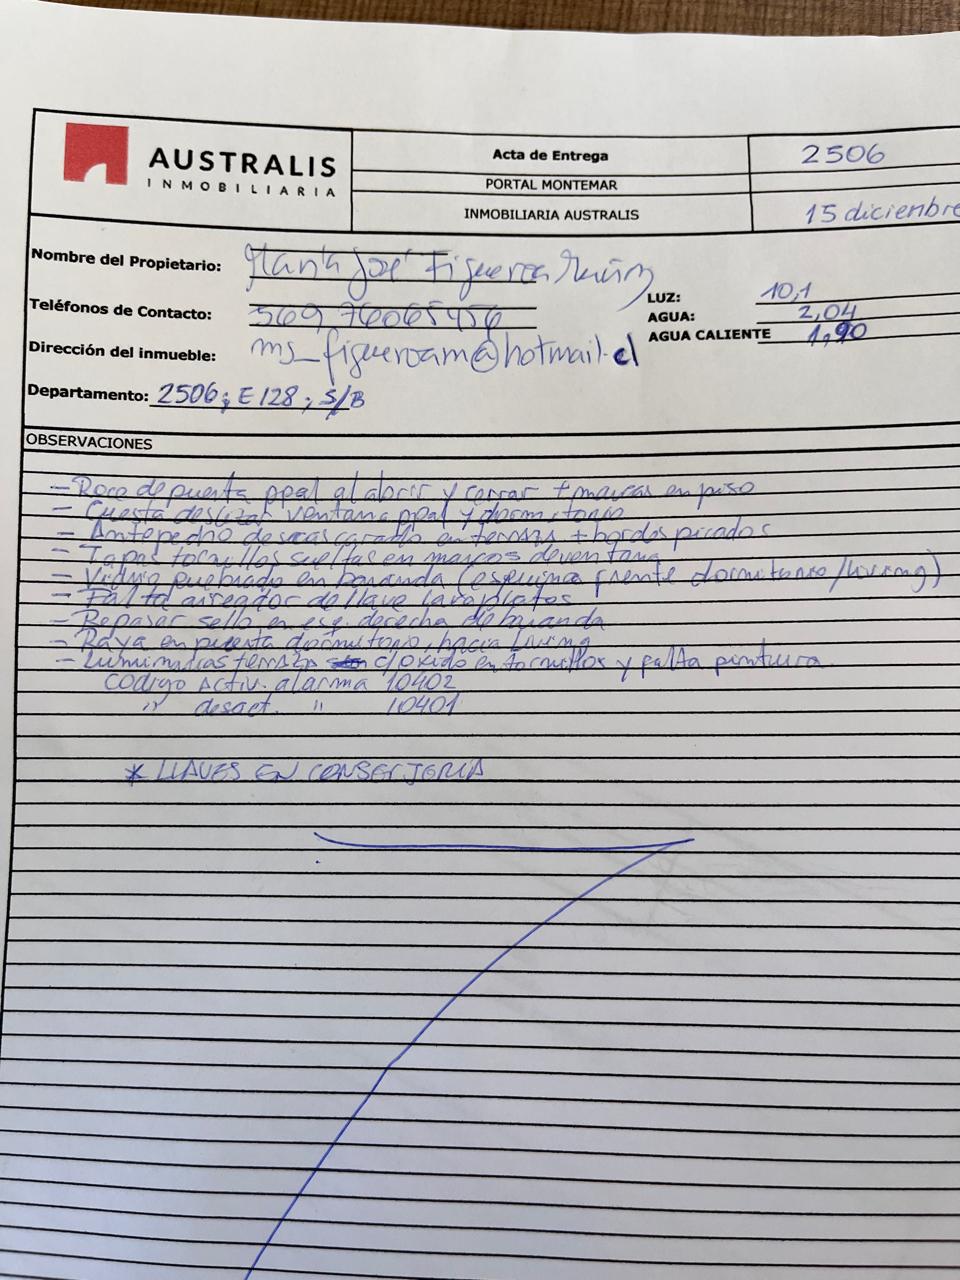 AUSTRALIS
INMOBILIARIA
Acta de Entrega
2506
PORTAL MONTEMAR
INMOBILIARIA AUSTRALIS
15 diciembre
Nombre del Propietario: María José Figueroa Muñoz
Teléfonos de Contacto: 569 76065456
Dirección del inmueble: ms_figueroam@hotmail.cl
LUZ: 10,1
AGUA: 2,04
AGUA CALIENTE 1,90
Departamento: 2506; E128; S/B
OBSERVACIONES
- Roce de puerta ppal al abrir y cerrar + marcas en piso
- Cuesta deslizar ventana ppal y dormitorio
- Antepecho descascarado en terraza + bordes picados
- Tapas tornillos sueltas en marcos de ventana
- Vidrio quebrado en baranda (esquina frente dormitorio/living)
- Falta aireador de llave lavaplatos
- Repasar sello en esq. derecha de baranda
- Raya en puerta dormitorio, hacia living
- Luminarias terraza c/oxido en tornillos y falta pintura.
Código Activ. alarma 10402
" desact. " 10401
* LLAVES EN CONSERJERIA